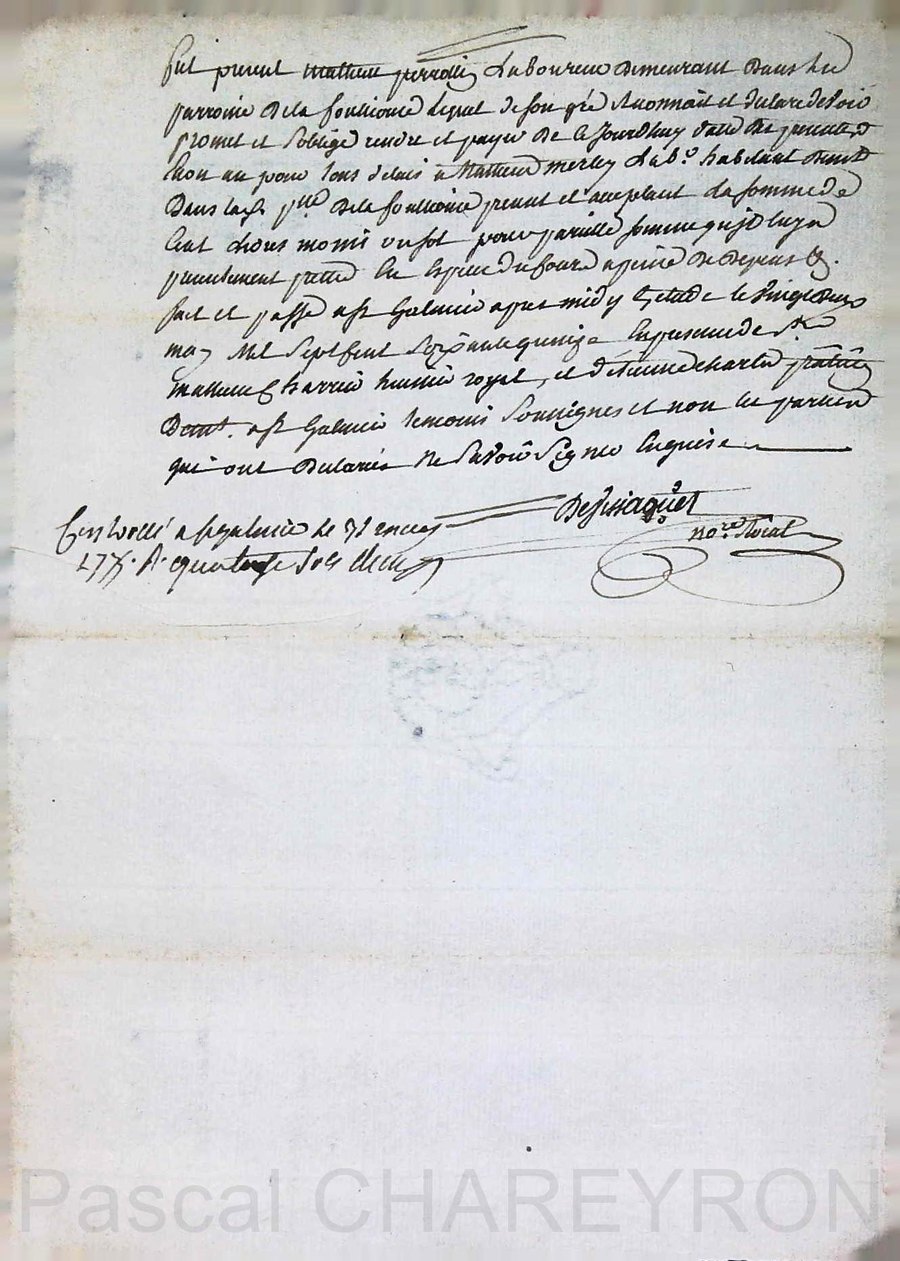 fut present mathieu perrolliz Laboureur demeurant dans la
parroisse de la fouliouse lequel de son gré reconnait et declare devoir
promet et soblige rendre et payer de ce Jourdhuy datte des presantes
en un an pour tous delais a Mathieu Merley Lab.r habitant
dans lad. p.sse de la fouliouse present et acceptant La somme de
Cent Livres moins un sol pour pareille somme
presentement en Espece du Cours a peine de depens &.
fait et passé a st Galmier apres midy Letude le vingt deux
may Mil Sept Cent Soixante quinze En presence de s.r
Mathieu Charrin huissier royal, et d'étienne charles praticien
dem.t a st Galmier temoins Soussignes et non les parties
qui ont declarées Ne Savoir Signer Enquise
Desjssaquet
no.re Roial
Controllé a st galmier le 31 may
177. R. quatorze sols
Pascal CHAREYRON